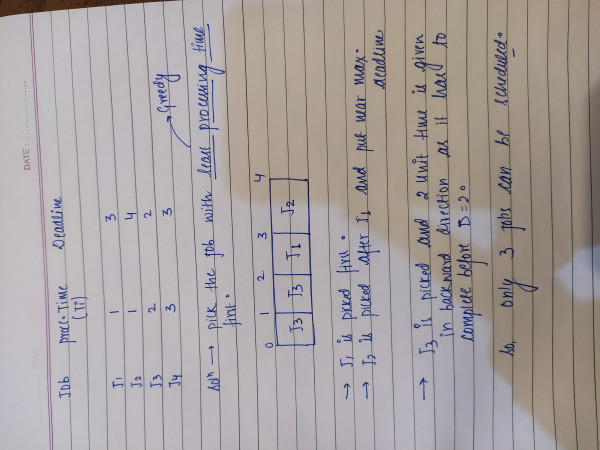 DATE: ................
Job proc. Time Deadline
(Ti)
J1 1 3
J2 1 4
J3 2 2
J4 3 3
→ Greedy
Solⁿ → pick the job with least processing time
first.
0 1 2 3 4
J3 J3 J1 J2
→ J1 is picked first.
→ J2 is picked after J1 and put near max.
deadline
→ J3 is picked and 2 unit time is given
in backward direction as it has to
complete before D=2.
So, only 3 jobs can be scheduled.